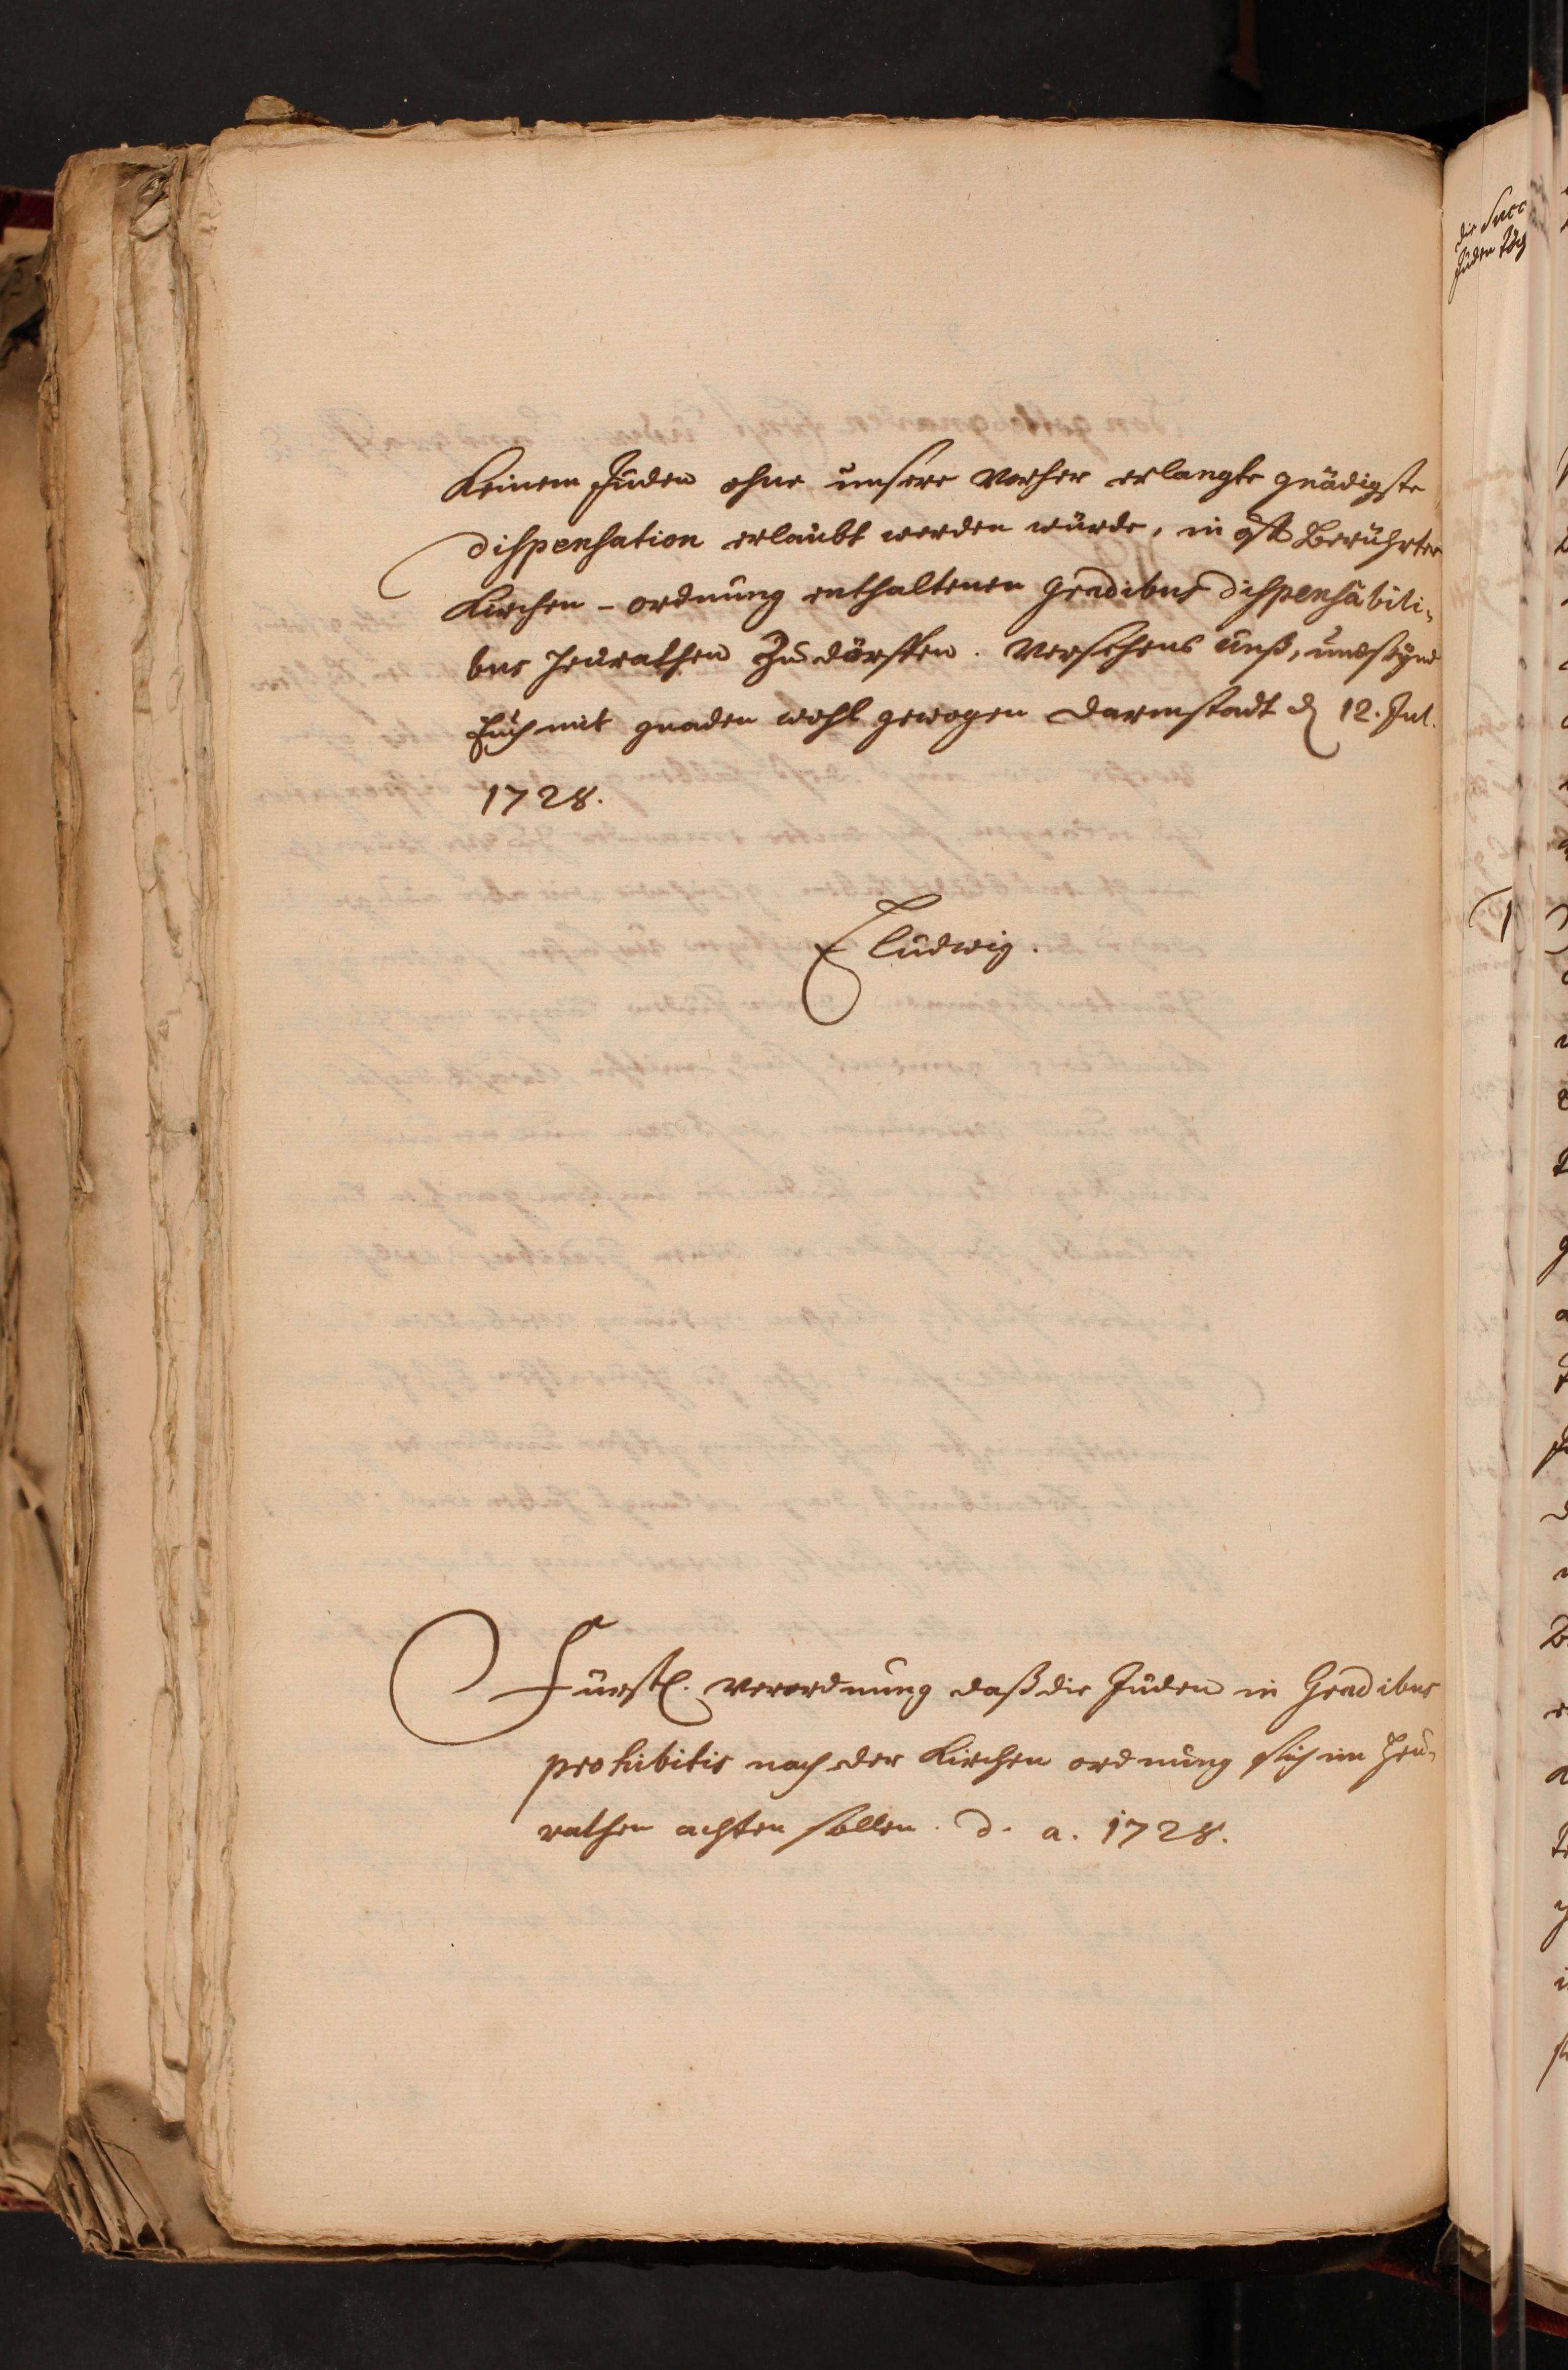 Keinem Juden ohne unsere vorher erlangte gnädigste
dispensation erlaubt werden würde, in offt Berührter
Kirchen-ordnung enthaltenen gradibus dispensabili-
bus heurathen Zu dörffen. Versehens unß, und seynd
Euch mit gnaden wohl gewogen Darmstadt d 12. Jul.
1728.
E Ludwig.
Fürstl. Verordnung daß die Juden in Gradibus
prohibitis nach der Kirchen ordnung sich im heu-
rathen achten sollen. d. a. 1728.
die Succ
Juden